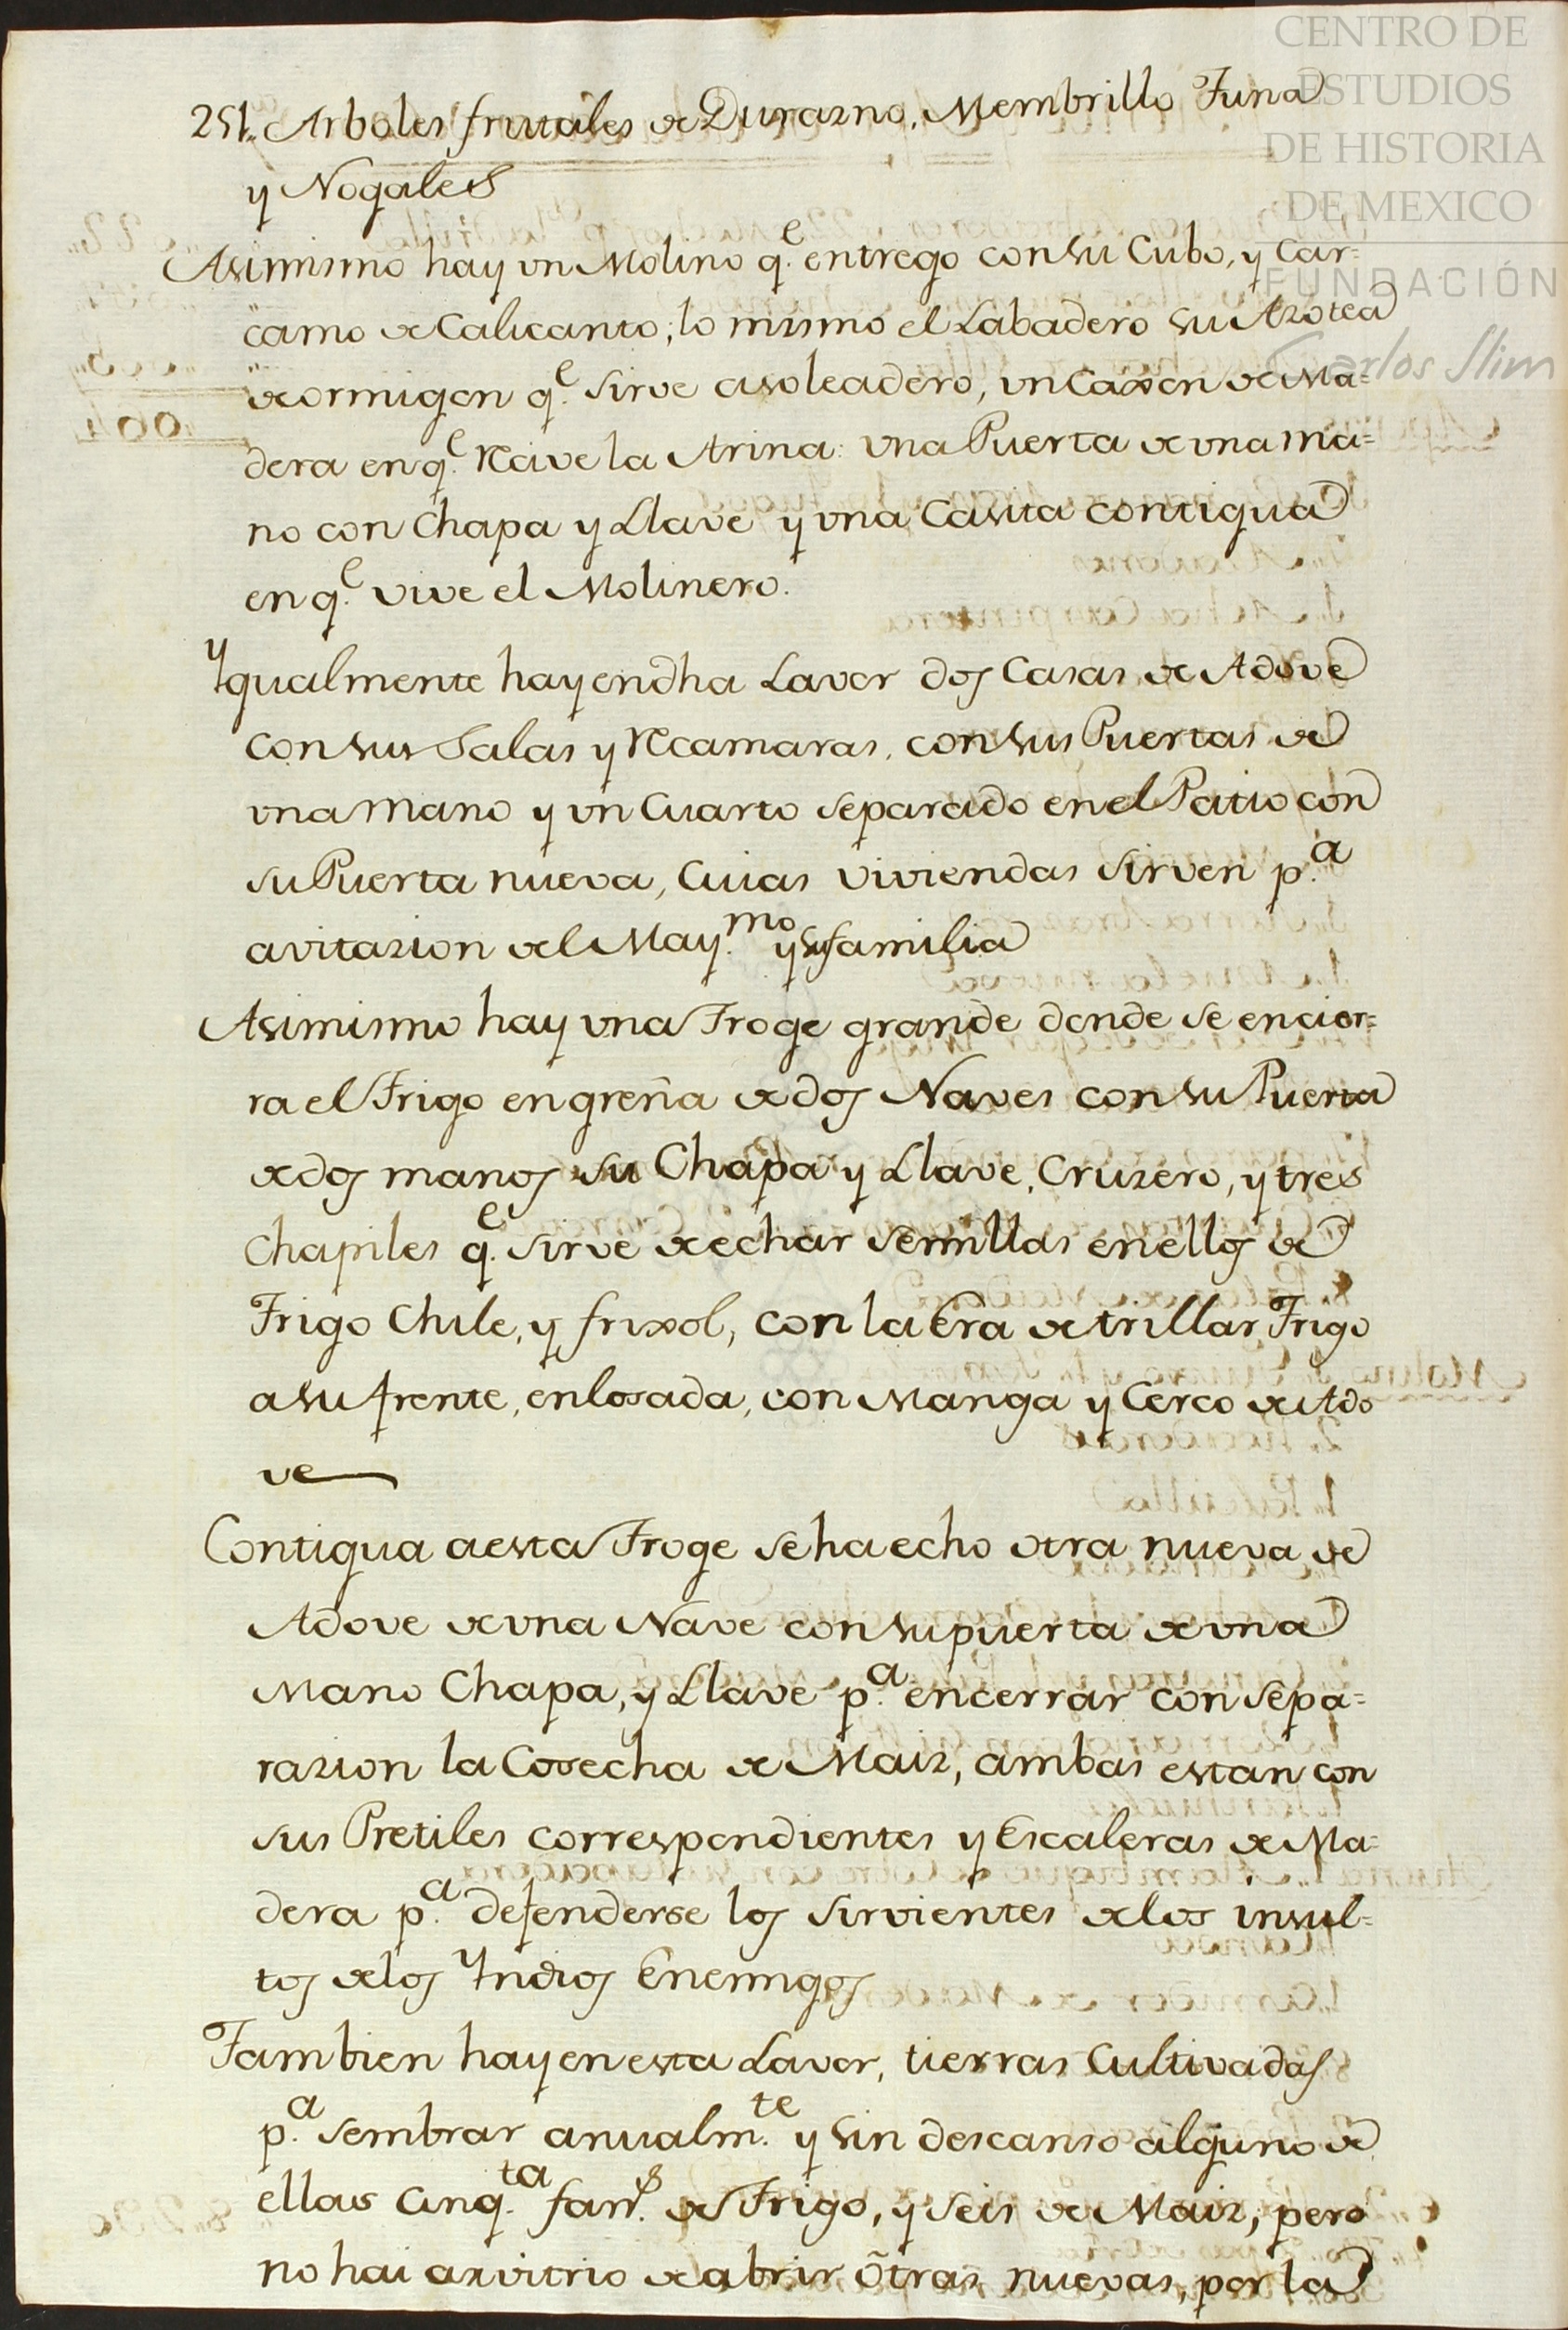 CENTRO DE
ESTUDIOS
DE HISTORIA
DE MEXICO
FUNDACIÓN
Carlos Slim
251,, Arboles frutales de Durazno, Membrillo Tuna
y Nogales
Asimismo hay vn Molino q.e entrego con su Cubo, y Car=
camo de Calicanto; lo mismo el Labadero su Azotea
de ormigon q.e sirve asoleadero, vn Caxon de Ma=
dera en q.e Recive la Arina: vna Puerta de vna ma=
no con Chapa y Llave y vna Casita contigua
en q.e vive el Molinero.
Ygualmente hay en dha Lavor dos Casas de Adove
con sus Salas y Recamaras, con sus Puertas de
vna mano y vn Cuarto separado en el Patio con
su Puerta nueva, Cuias viviendas sirven p.a
avitazion del May.mo y su familia
Asimismo hay vna Troge grande donde se encier=
ra el Trigo en greña de dos Naves con su Puerta
de dos manos su Chapa y Llave, Cruzero, y tres
Chapiles q.e sirve de echar semillas en ellos de
Trigo Chile, y frixol, con la Era de trillar Trigo
a su frente, enlosada, con Manga y Cerco de Ado
ve
Contigua a esta Troge se ha echo otra nueva de
Adove de vna Nave con su puerta de vna
Mano Chapa, y Llave p.a encerrar con sepa=
razion la Cosecha de Maiz, ambas estan con
sus Pretiles correspondientes y Escaleras de Ma=
dera p.a defenderse los sirvientes de los insul=
tos de los Yndios Enemigos
Tambien hay en esta Lavor, tierras Cultivadas
p.a sembrar anualm.te y sin descanso alguno de
ellas Cinq.ta fan.s de Trigo, y seis de Maiz, pero
no hai arvitrio de abrir õtras nuevas, por la